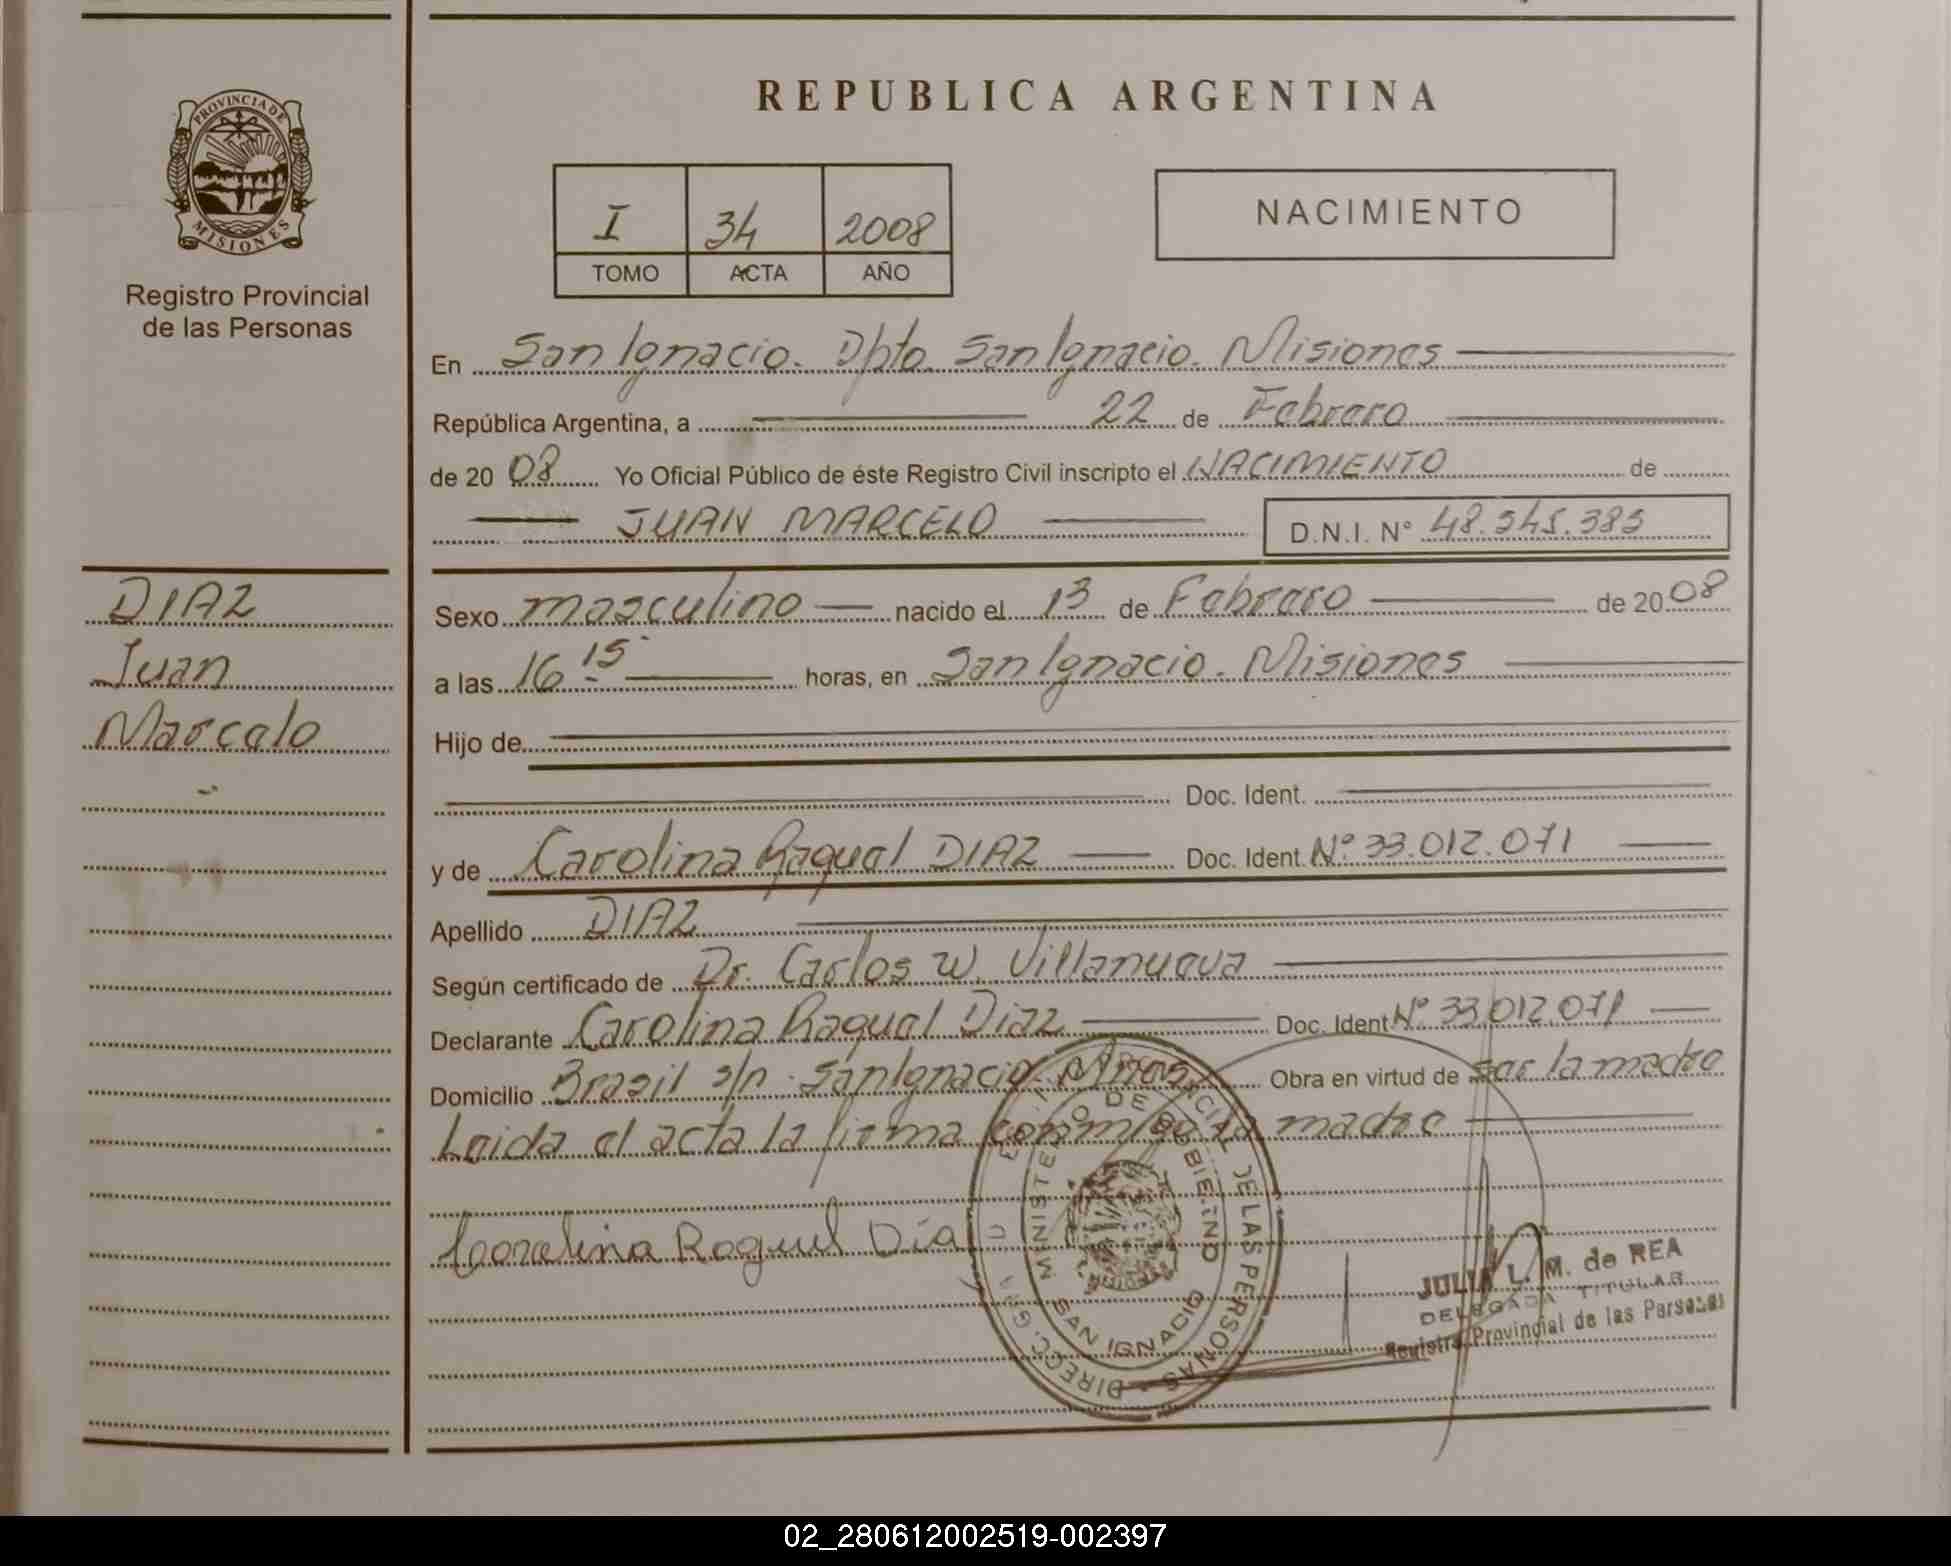 PROVINCIA DE
MISIONES
Registro Provincial
de las Personas
REPUBLICA ARGENTINA
I 34 2008
TOMO ACTA AÑO
NACIMIENTO
En San Ignacio. Dpto. San Ignacio. Misiones
República Argentina, a 22 de Febrero
de 20 08 Yo Oficial Público de éste Registro Civil inscripto el NACIMIENTO de
JUAN MARCELO D.N.I. Nº 48.545.385
DIAZ
Juan
Marcelo
Sexo masculino nacido el 13 de Febrero de 20 08
a las 16 15 horas, en San Ignacio. Misiones
Hijo de
Doc. Ident.
y de Carolina Raquel DIAZ Doc. Ident. Nº 33.012.071
Apellido DIAZ
Según certificado de Dr. Carlos W. Villanueva
Declarante Carolina Raquel Diaz Doc. Ident Nº 33.012.071
Domicilio Brasil s/n. San Ignacio. Mnes. Obra en virtud de ser la madre
Leida el acta la firma conmigo la madre
Carolina Raquel Día
DIRECC. GRAL. PROVINCIAL DE LAS PERSONAS
MINISTERIO DE GOBIERNO
SAN IGNACIO
JULIA L. M. de REA
DELEGADA TITULAR
Registro Provincial de las Personas
02_280612002519-002397